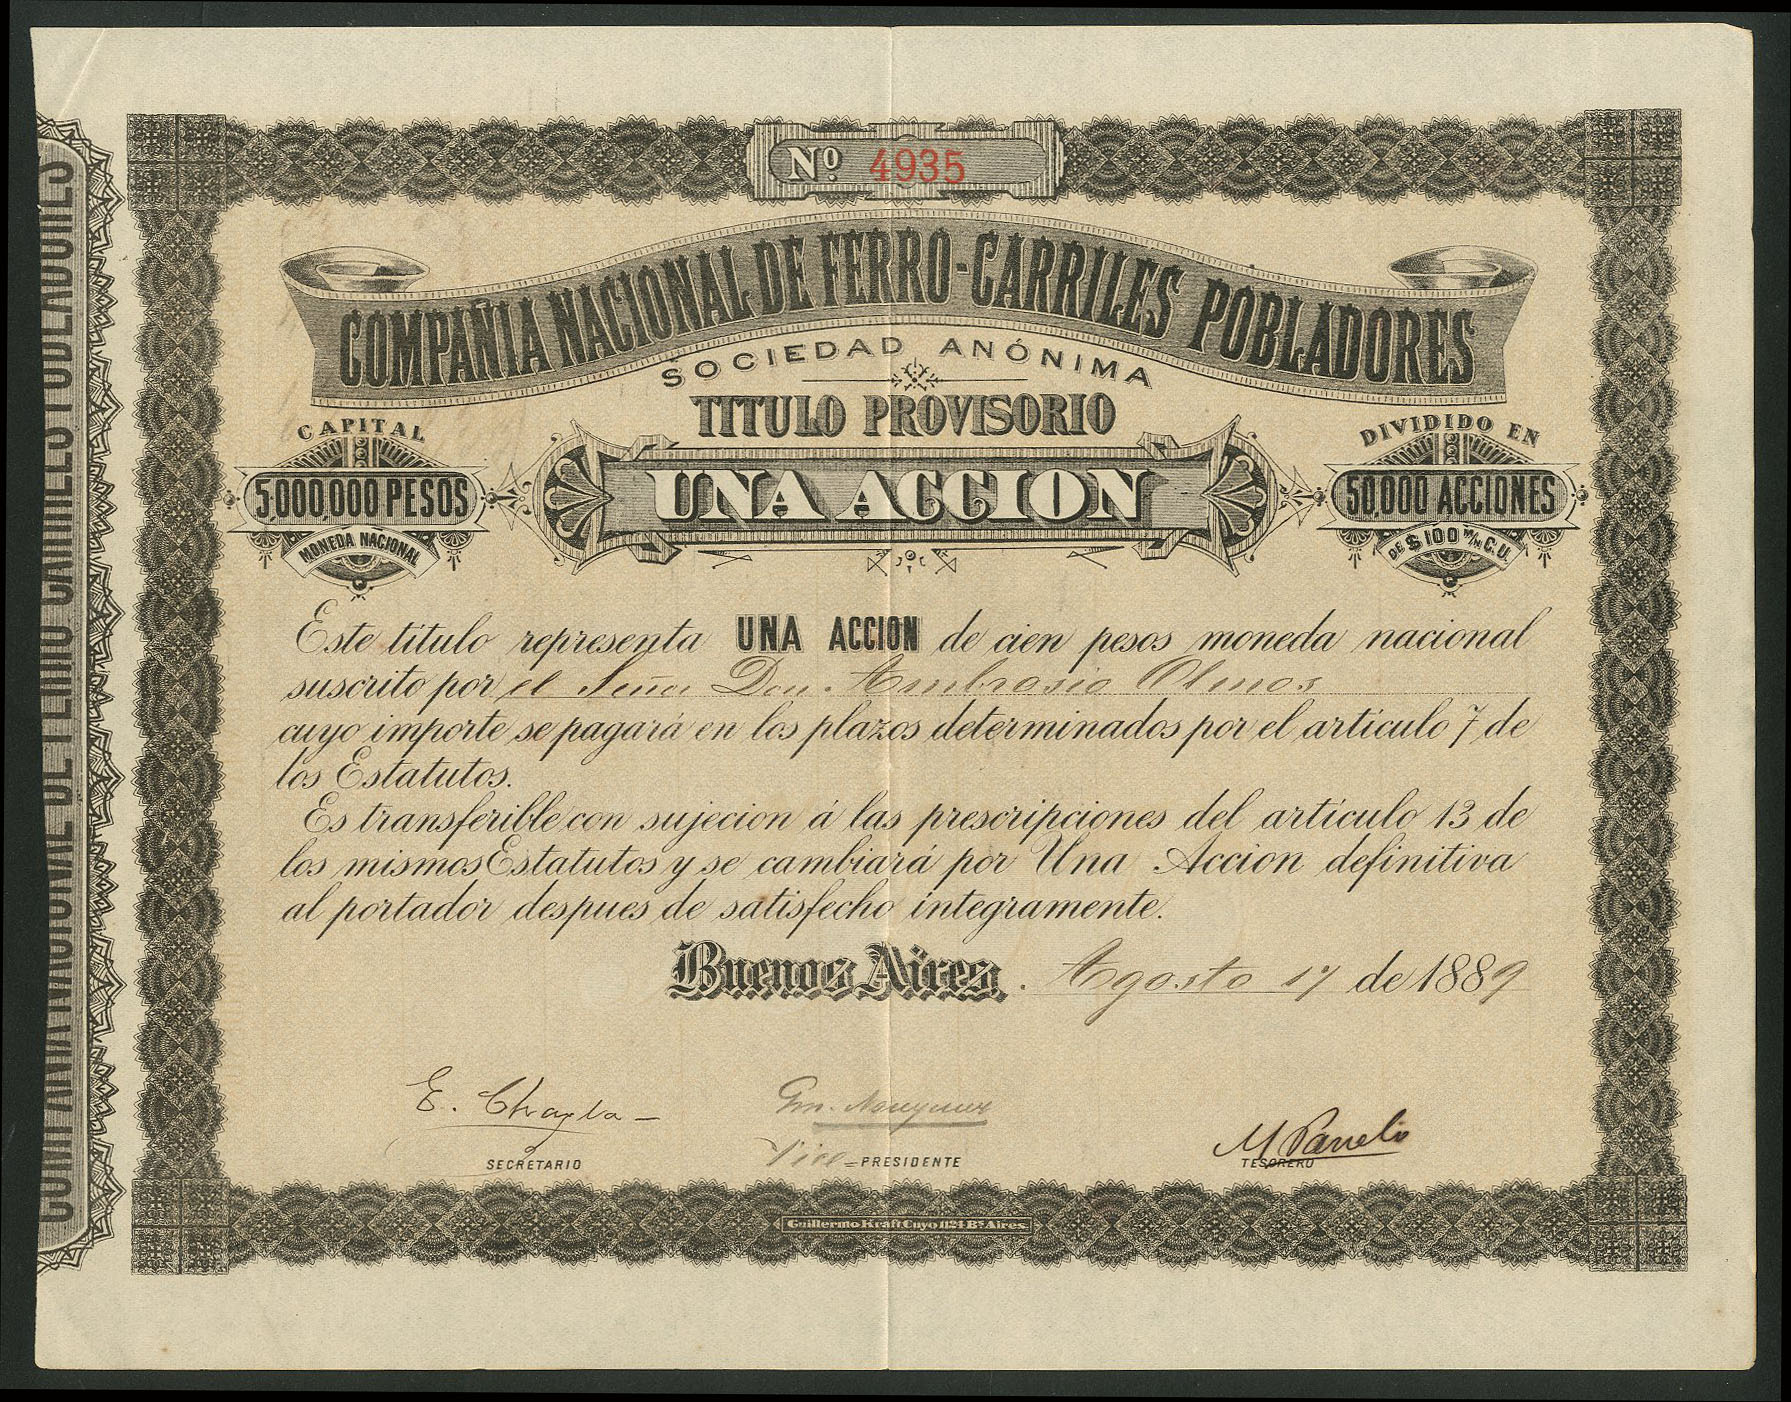 Nº 4935
COMPAÑIA NACIONAL DE FERRO-CARRILES POBLADORES
SOCIEDAD ANÓNIMA
TITULO PROVISORIO
CAPITAL
5,000,000 PESOS
MONEDA NACIONAL
UNA ACCION
DIVIDIDO EN
50,000 ACCIONES
DE $ 100 M/N C.U.
Este titulo representa UNA ACCION de cien pesos moneda nacional
suscrito por el Señor Don Ambrosio Olmos
cuyo importe se pagará en los plazos determinados por el articulo 7 de
los Estatutos.
Es transferible con sujecion á las prescripciones del artículo 13 de
los mismos Estatutos y se cambiará por Una Accion definitiva
al portador despues de satisfecho integramente.
Buenos Aires, Agosto 17 de 1889
E.
SECRETARIO
Vice-PRESIDENTE
M
TESORERO
Guillermo Kraft Cuyo 1124 Bs Aires.
COMPAÑIA NACIONAL DE FERRO CARRILES POBLADORES